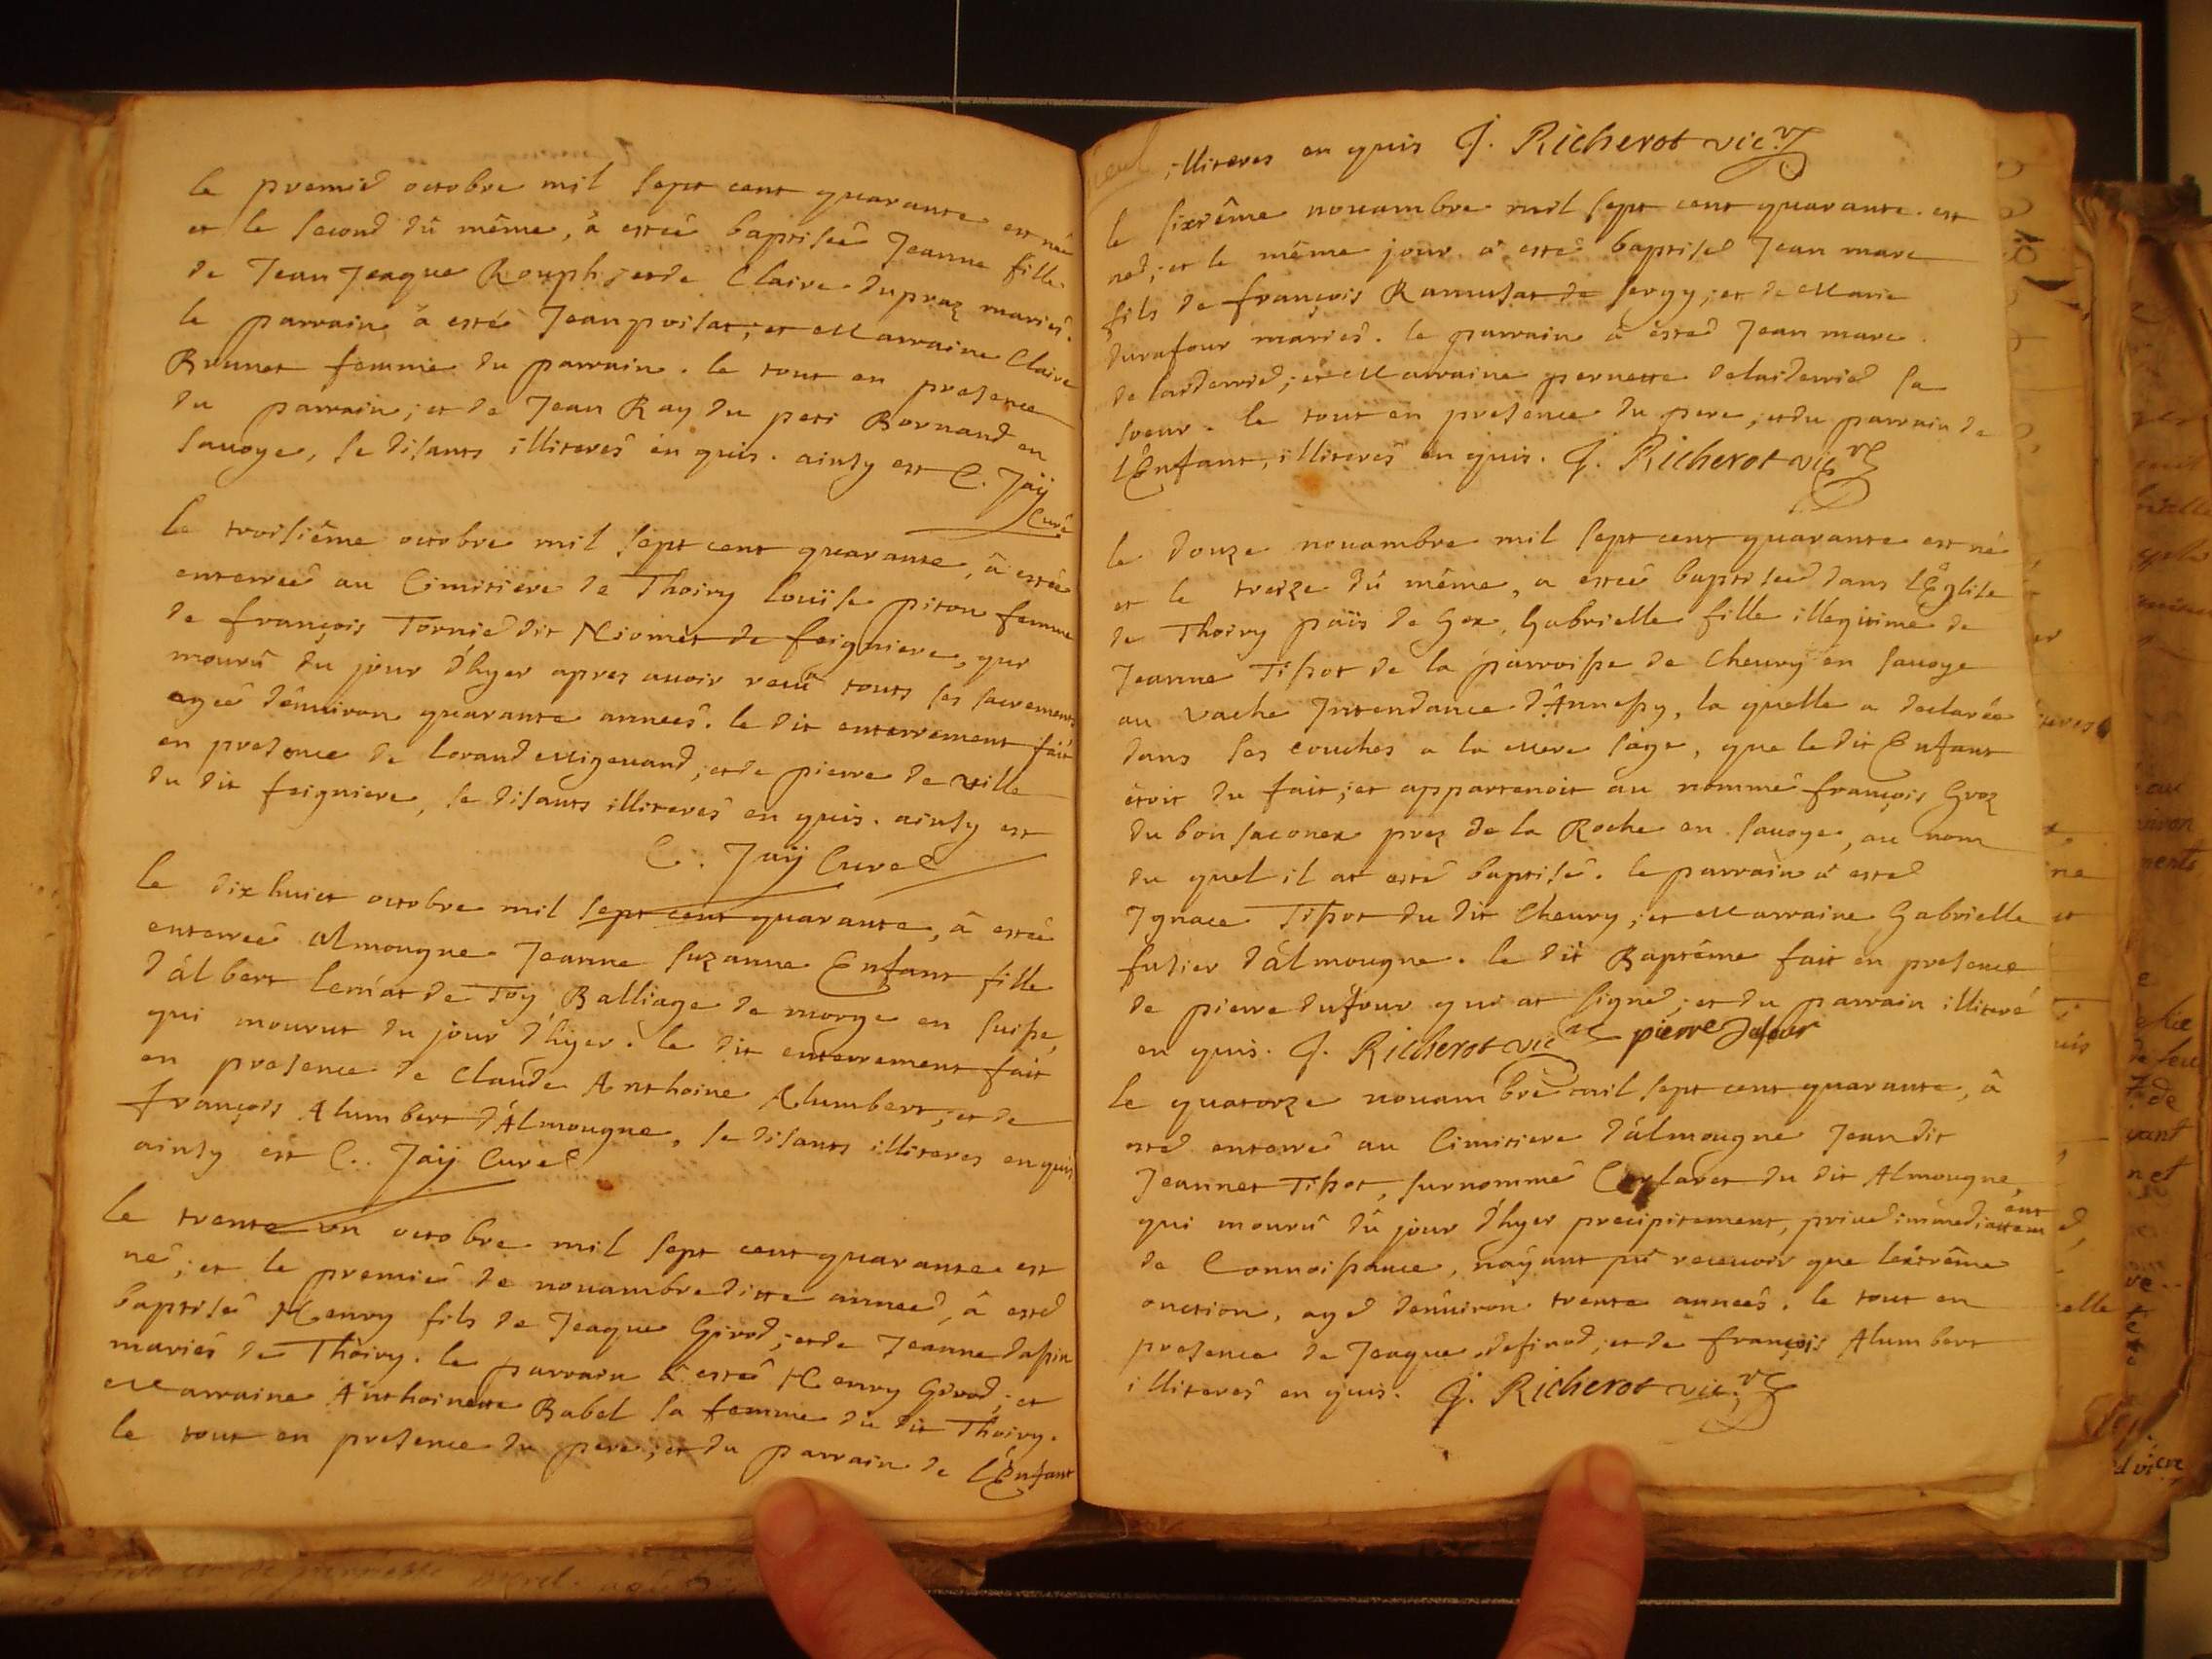 le premier octobre mil sept cent quarante est née
et le second dû même, à estée baptiseé Jeanne fille
de Jean Jeaque Rouph; et de Claire dupraz mariés.
le parrain à esté Jean poisat; et Marraine Claire
Brunet femme du parrain. le tout en presence
du parrain; et de Jean Ray du peti Bornand en
sauoye, se disants illiteres en quis. ainsy est C. Jaÿ
Curé
le troisiême octobre mil sept cent quarante, â estée
enterreé au Cimitiere de Thoiry Louïse piton femme
de françois Tornier dit Niomet de feigniere, qui
mourû du jour d'hyer apres auoir reçû touts ses sacrements
ageé d'enuiron quarante anneés. le dit enterrement fait
en presence de Lorand Migeuand; et de pierre de ville
du dit feigniere, se disants illiteres en quis. ainsy est
C. Jaÿ Curé
le dixhuict octobre mil sept cent quarante, â estée
enterreé almougne Jeanne suzanne Enfant fille
d'albert de Toÿ Balliage de morge en suisse,
qui mourut du jour d'hyer. le dit enterrement fait
en presence de Claude Anthoine Alumbert; et de
françois Alumbert d'Almougne, se disants illiteres en quis
ainsy est C. Jaÿ Curé
le trente vn octobre mil sept cent quarante est
né; et le premier de nouambre ditte anneé, â esté
baptisé Henry fils de Jeaque Girod; et de Jeanne dapin
mariés de Thoiry. le parrain à esté Henry Girod; et
Marraine Anthoinette Babel sa femme du dit Thoiry.
le tout en presence du pere; et du parrain de l'Enfant
illiteres en quis J. Richerot vicre
le sixiême nouambre mil sept cent quarante. est
né; et le même jour a esté baptisé Jean marc
fils de françois Ramusat de sergy; et de Marie
durafour mariés. le parrain à esté Jean marc
de laiderrier; et Marraine pernette delaiderrier sa
soeur. le tout en presence du pere; et du parrain de
l'Enfant, illiteres en quis. J. Richerot vicre
le douze nouambre mil sept cent quarante est né
et le treize dû même, a estée baptiseé dans l'Église
de Thoiry païs de Gex, Gabrielle fille illegitime de
Jeanne Tissot de la parroisse de Cheury en sauoye
au vache Intendance d'Annessy, la quelle a declarée
dans ses couches a la Mere sage, que le dit Enfant
étoit du fait; et appartenoit au nommé françois Groz
du bon saconex prez de la Roche en sauoye, au nom
du quel il at esté baptisé. le parrain a esté
Ignace Tissot du dit Cheury; et Marraine Gabrielle
fusier d'almougne. le dit Baptême fait en presence
de pierre dufour qui at signé; et du parrain illiteré
en quis. J. Richerot vicre pierre Dufour
le quatorze nouambre mil sept cent quarante, â
esté enterré au Cimitiere d'almougne Jean dit
Jeannet Tissot, surnommé du dit Almougne,
qui mourû dû jour d'hyer precipitement, priué immediattement
de Connoissance, n'ayant pû receuoir que l'extrême
onction, agé d'enuiron trente anneés. le tout en
presence de Jeaque definod; et de françois Alumbert
illiteres en quis. J. Richerot vicre